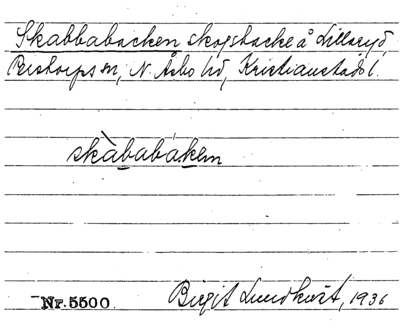 Skabbabacken skogsbacke å Lillaryd,
Perstorps sn, N. Åsbo hd, Kristianstads l.
skàbabákem
Nr. 5500. Birgit Lundkvist, 1936